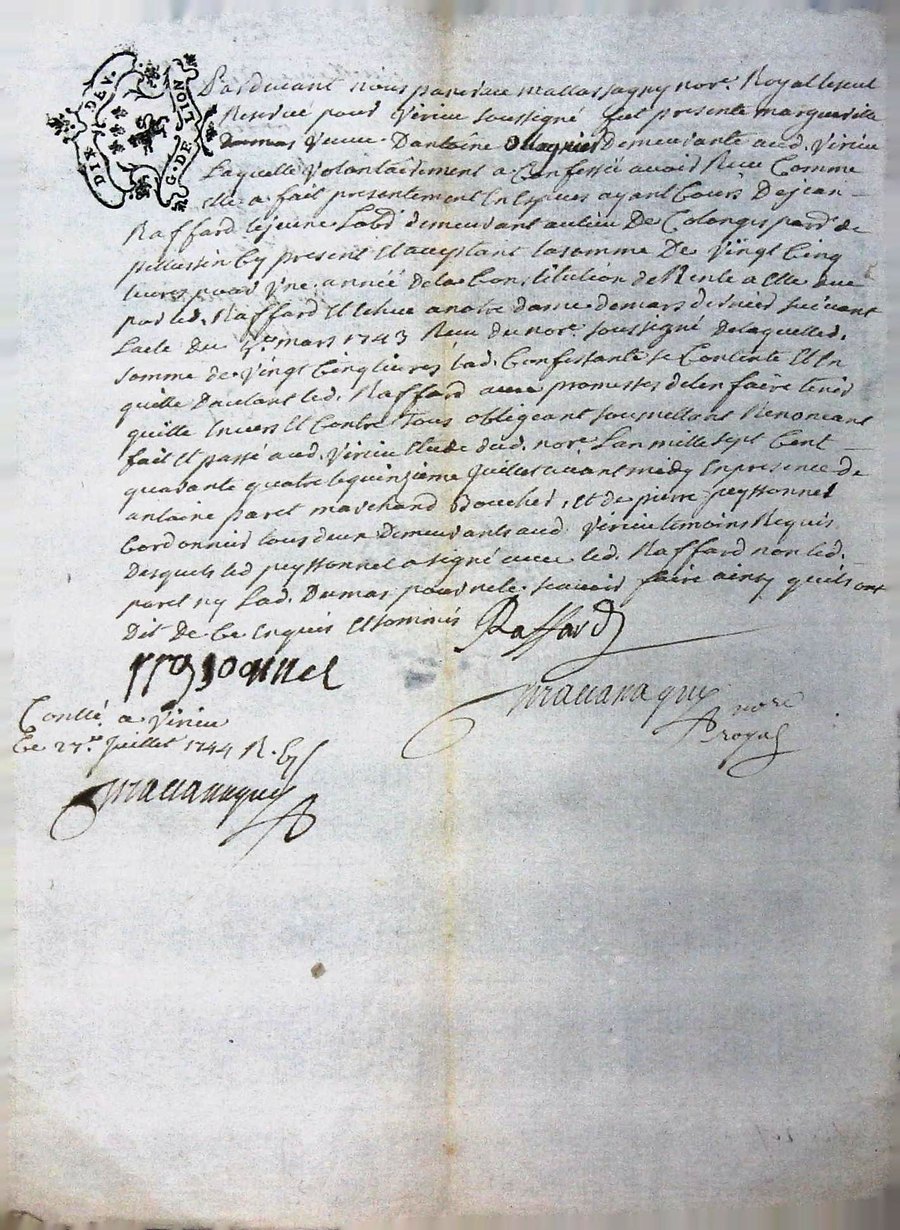 DIX DEV.
G. DE LION
Pardevant nous notre. Royal
Reservé pour Virieu soussigné fut presente marguerite
Dumas veuve Dantoine demeurante aud. Virieu
Laquelle volontairement a Confessé avoir Receu Comme
elle a fait presentement En especes ayant Cours De jean
Raffard lejeune Labr. demeurant au lieu De Colonges parr. de
pellussin Cy present et acceptant la somme De vingt cinq
livres pour vne année dela Constitution de Rente a elle due
par led. Raffard et Echue a notre dame demars dernier suivant
Lacte du mars 1743 Receu du nore. soussigné delaquelled.
somme de vingt Cinq livres lad. Confessante se Contente et En
quitte led. Raffard avec promesses delen faire tenir
quitte Envers et Contre Tous obligeant soumettant Renoncant
fait et passé aud. Virieu Etude dud. nore. Lan mille sept Cent
quarante quatre le quinzieme juillet avant midy En presence de
antoine paret marchand Boucher, et de pierre peyssonnel
Cordonnier tous deux Demeurants aud. Virieu temoins Requis
Desquels led peyssonnel a signé avec led. Raffard non led.
paret ny Lad. Dumas pour ne le scavoir faire ainsy quils ont
Dit De Ce Enquis et sommés Raffard
nore
royal
Conllé. a Virieu
Le 27e. Juillet 1744 R. Cy